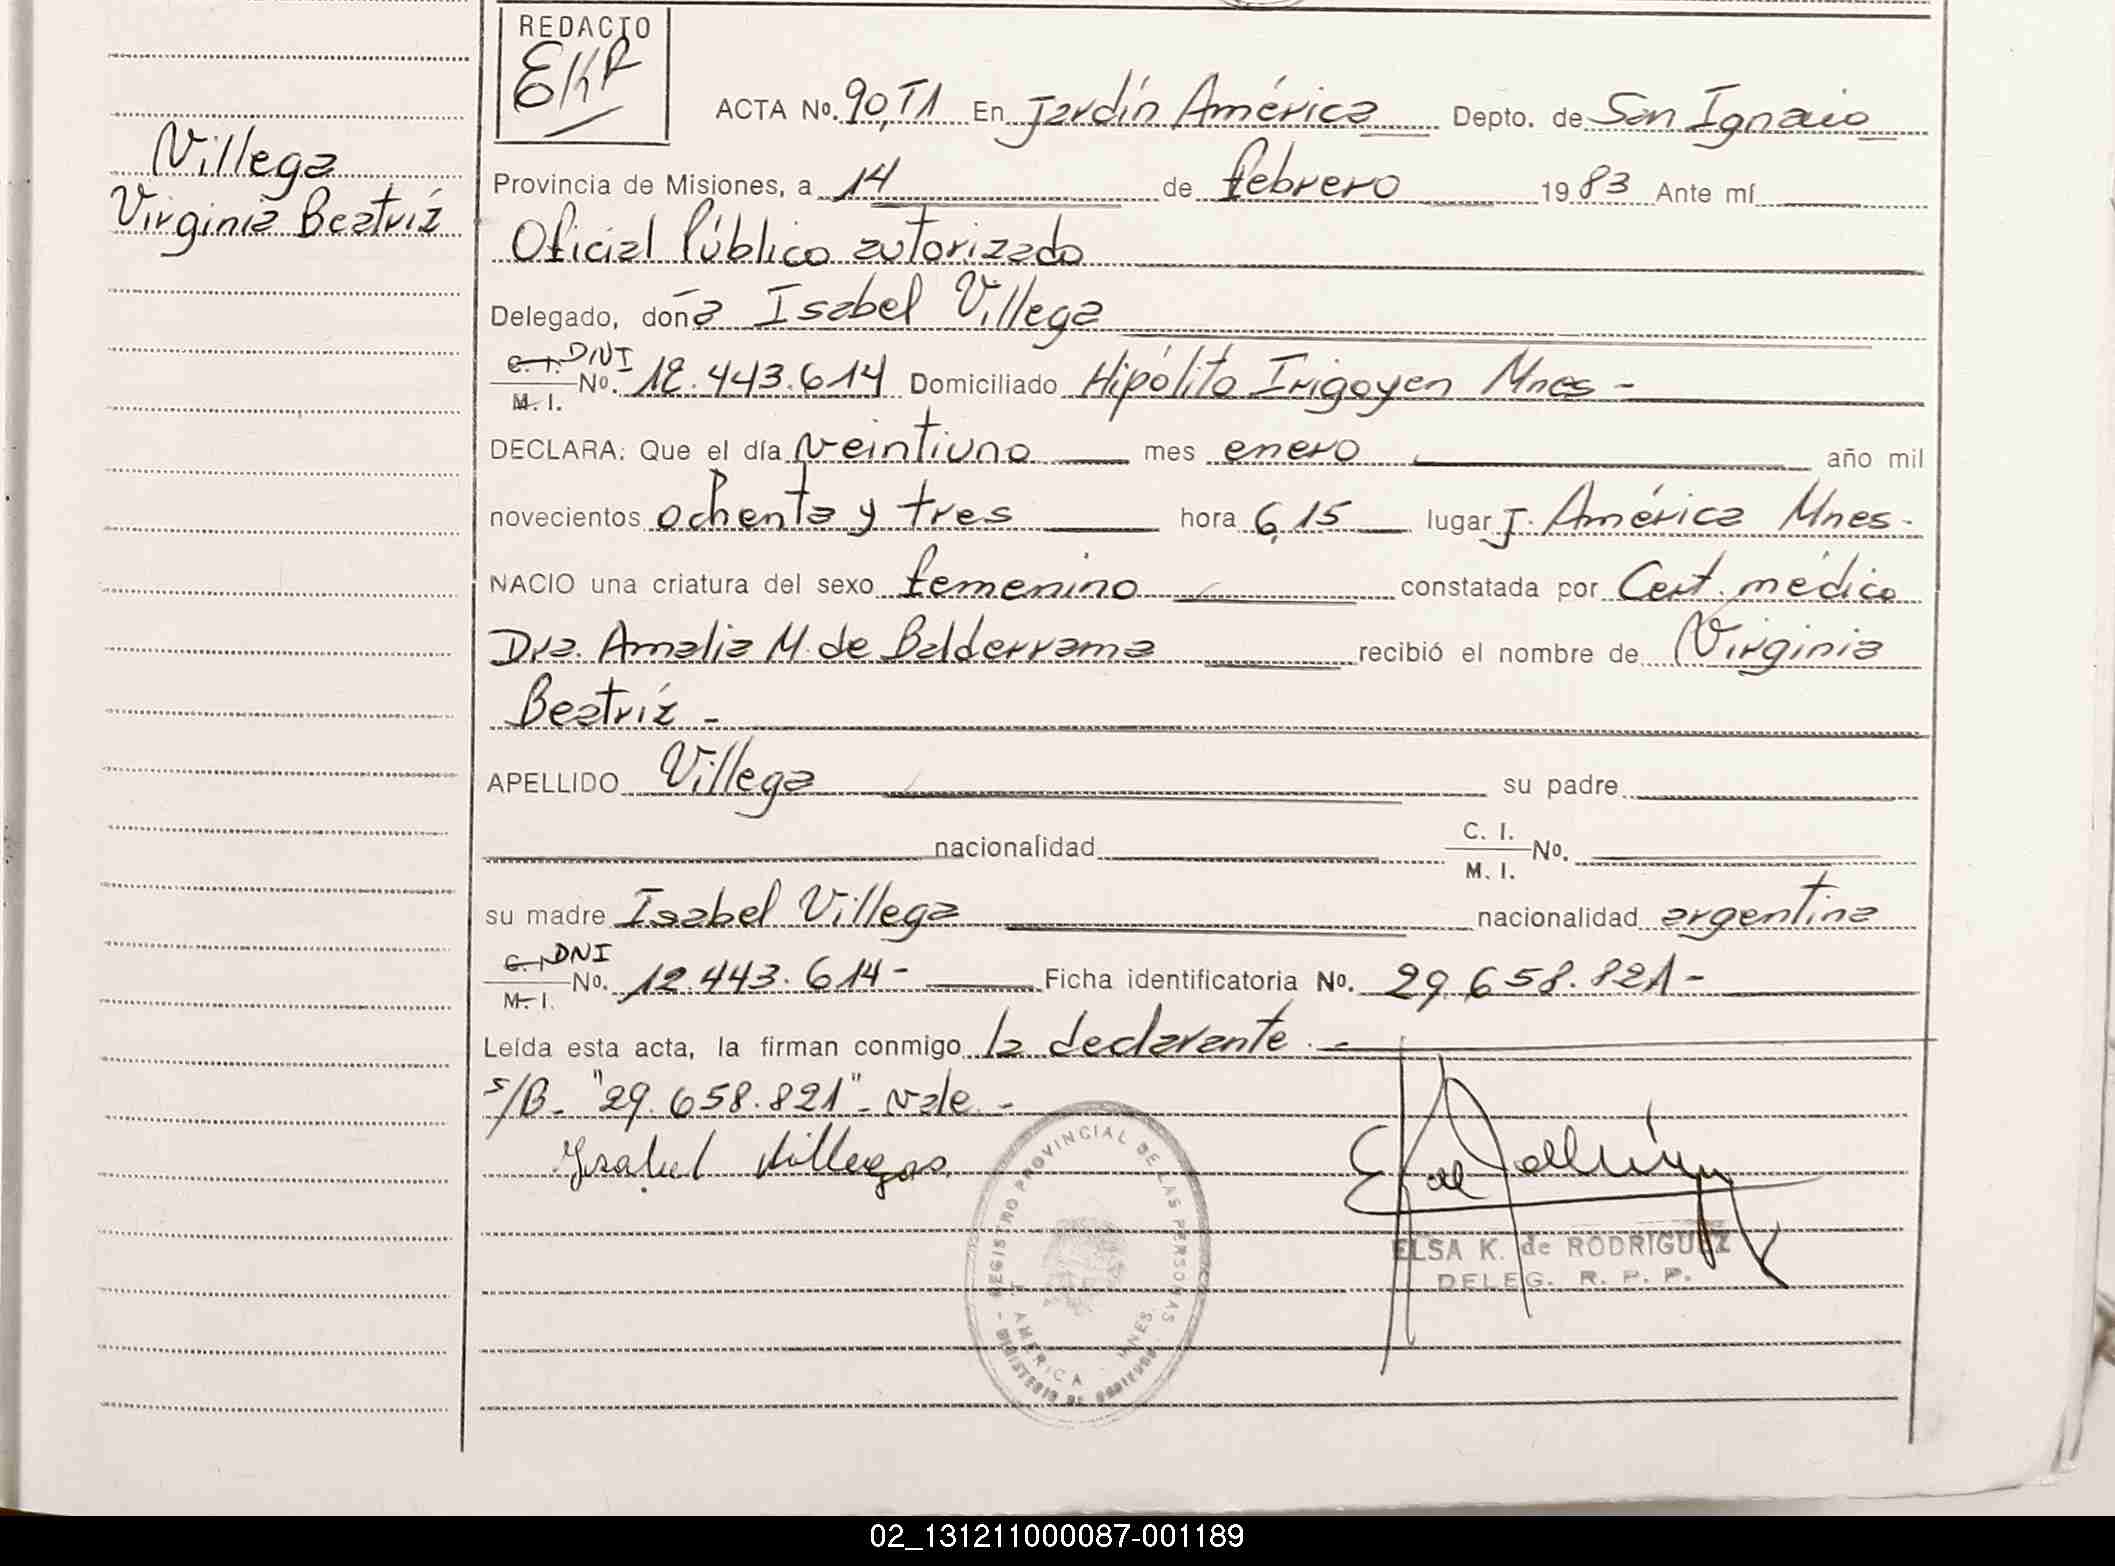 REDACTO
EKR
ACTA No. 90, T1 En Jardín América Depto. de San Ignacio
Villega
Virginia Beatriz
Provincia de Misiones, a 14 de febrero 1983 Ante mí
Oficial Público autorizado
Delegado, doña Isabel Villega
C. I. DNI
M. I. No. 12.443.614 Domiciliado Hipólito Irigoyen Mnes -
DECLARA: Que el día veintiuno mes enero año mil
novecientos ochenta y tres hora 6,15 lugar J. América Mnes.
NACIO una criatura del sexo femenino constatada por Cert. médico
Dra. Amalia M. de Balderrama recibió el nombre de Virginia
Beatríz -
APELLIDO Villega su padre
nacionalidad C. I. M. I. No.
su madre Isabel Villega nacionalidad argentina
C. I. DNI
M. I. No. 12.443.614 - Ficha identificatoria No. 29.658.821 -
Leída esta acta, la firman conmigo la declarante. -
s/B. "29.658.821" - vale. -
Ysabel Villegas
REGISTRO PROVINCIAL DE LAS PERSONAS
J. AMERICA - MNES.
- MINISTERIO DE GOBIERNO -
ELSA K. de RODRIGUEZ
DELEG. R. P. P.
02_131211000087-001189